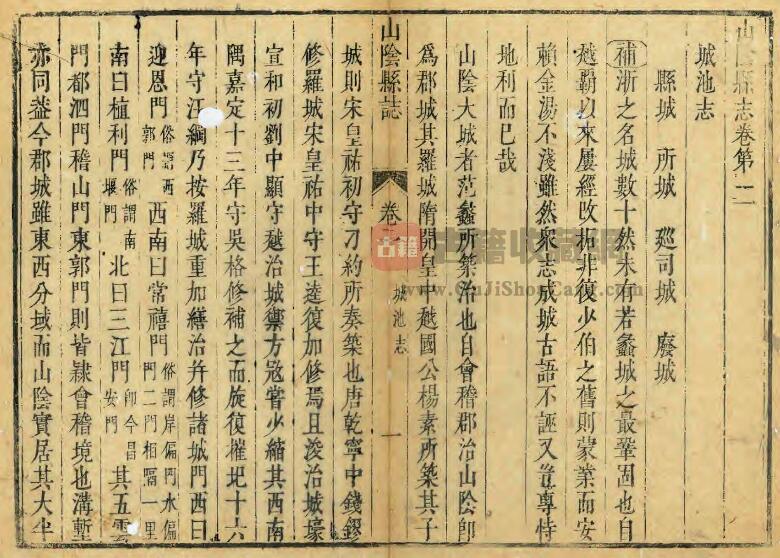 山陰縣志卷第二
城池志
縣城　所城　廵司城　廢城
補浙之名城數十然未有若蠡城之最鞏固也自
越霸以來屢經改拓非復少伯之舊則蒙業而安
賴金湯不淺雖然衆志成城古語不誣又豈專恃
地利而已哉
山陰大城者范蠡所築治也自會稽郡治山陰即
爲郡城其羅城隋開皇中越國公楊素所築其子
城則宋皇祐初守刁約所奏築也唐乾寧中錢鏐
修羅城宋皇祐中守王逵復加修焉且浚治城壕
宣和初劉中顯守越治城禦方冦嘗少縮其西南
隅嘉定十三年守吳格修補之而旋復摧圮十六
年守汪綱乃按羅城重加繕治并修諸城門西曰
迎恩門俗謂西郭門西南曰常禧門俗謂岸偏門水偏門二門相隔一里
南曰植利門俗謂南堰門北曰三江門即今昌安門其五雲
門都泗門稽山門東郭門則皆隷會稽境也溝塹
亦同葢今郡城雖東西分域而山陰實居其大半
山陰縣誌
卷二
城池志
一
古籍
古籍收藏网
www.GuJiShouCang.com